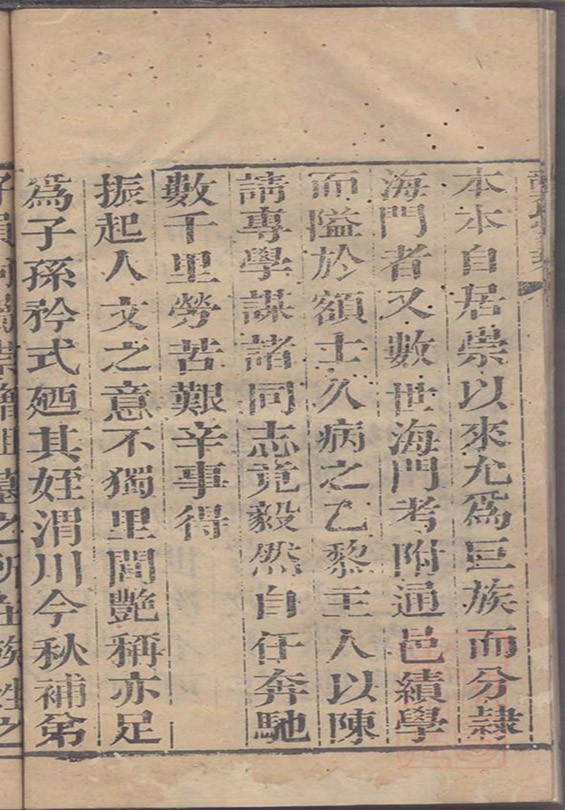 本本自居崇以來尤爲巨族而分隷
海門者又數世海門考附通邑績學
而隘於額士久病之乙黎主人以陳
請專學謀諸同志竟毅然自任奔馳
數千里勞苦艱辛事得
振起人文之意不獨里閭艷稱亦足
爲子孫矜式廼其姪渭川今秋補弟